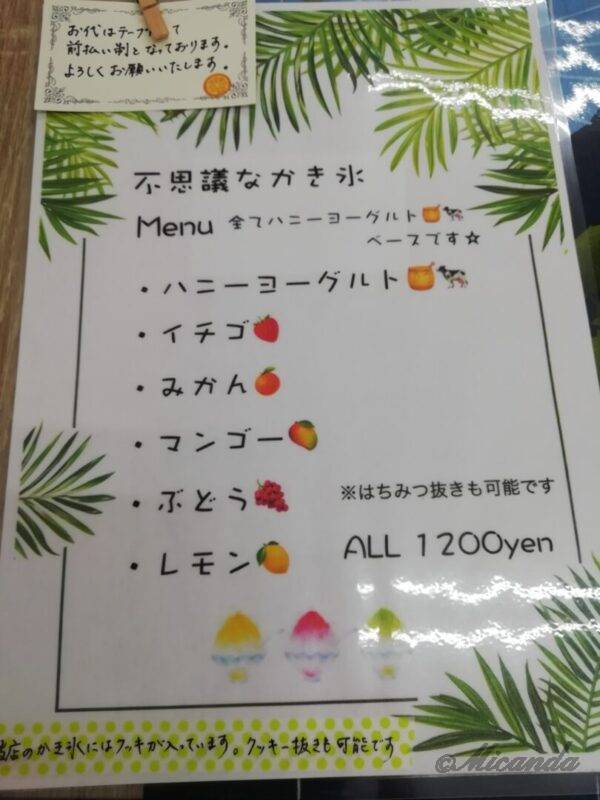 お代はテーブルにて
前払い制となっております。
よろしくお願いいたします。
不思議なかき氷
Menu 全てハニーヨーグルト
ベースです☆
・ハニーヨーグルト
・イチゴ
・みかん
・マンゴー
・ぶどう
※はちみつ抜きも可能です
・レモン
ALL 1200yen
店のかき氷にはクッキが入っています。クッキー抜きも可能です
©Micanda